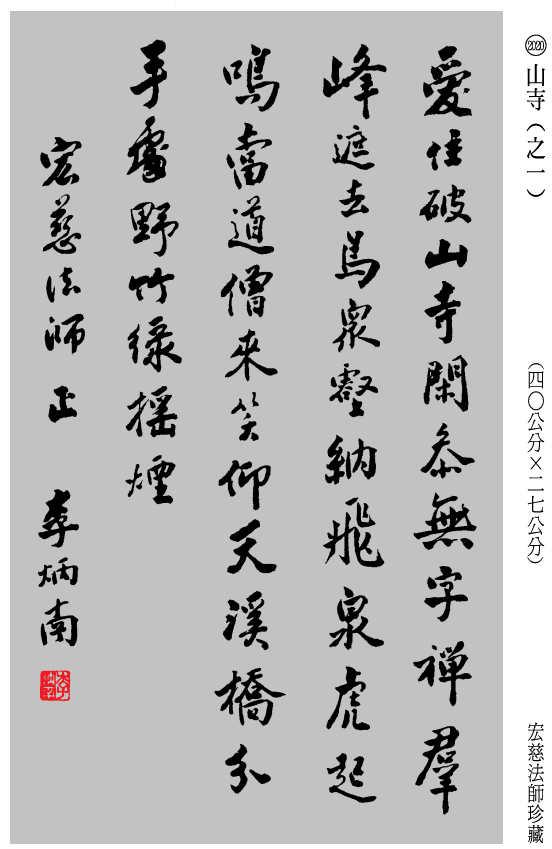 ⟨2020⟩山寺（之一）
（四〇公分×二七公分）
宏慈法師珍藏
愛住破山寺閑參無字禪羣
峰遮去鳥眾壑納飛泉虎起
鳴當道僧來笑仰天溪橋分
手處野竹綠搖煙
宏慈法師正
李炳南